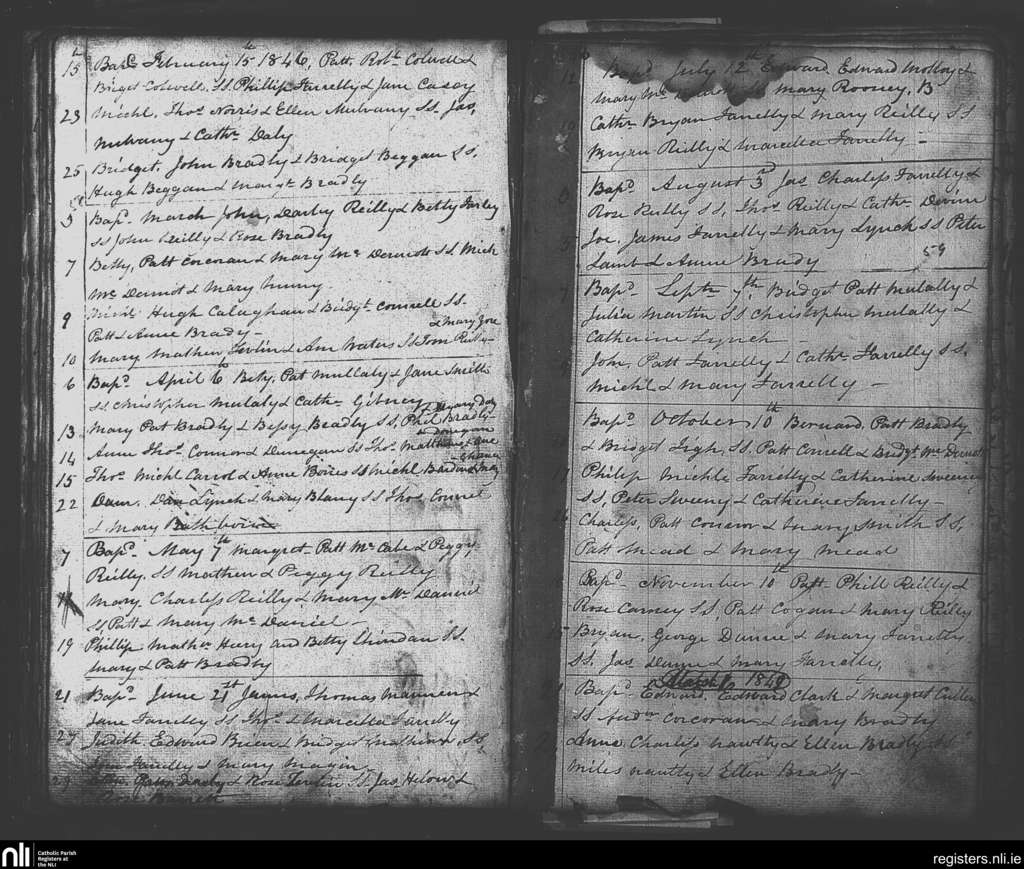 15 Bapd. February 15th 1846, Patt, Robt Colwell &
Bridget Colwell, SS Phillip Farrelly & Jane Casey
23 Michl, Thos Norris & Ellen Mulvany SS. Jas,
Mulvany & Cathn Daly
25 Bridget, John Brady & Bridget Beggan SS.
Hugh Beggan & Margt Brady
5 Bapd. March John, Darby Reilly & Betty Farley
SS John Reilly & Rose Brady
7 Betty, Patt Corcoran & Mary Mc Dermott SS. Mich
Mc Dermot & Mary
9 Hugh Calaghan & Bridgt Connell SS.
Patt & Anne Brady -
& Mary
10 Mary Mathew & Ann Waters SS Tom Reilly -
6 Bapd. April 6 Bety, Pat Mullaly & Jane Smith
SS. Christopher Mulaly & Cathn Gibney
13 Mary Pat Brady & Bessy Brady SS, Phil Brady
14 Anne Thos. Connor & Dunegan SS Thos
15 Thos Michl Carrol & Anne SS Michl
22 Lynch & Mary SS Thos,
& Mary
7 Bapd. May 7th Margret Patt Mc Cabe & Peggy
Reilly. SS Mathew & Peggy Reilly
Mary Charless Reilly & Mary Mc Daniel
SS, Patt & Mary Mc Daniel -
19 Phillip Mathw and Betty SS.
Mary & Patt Brady
21 Bapd. June 21st James, Thomas &
Jane Farrelly SS Thos. & Marcella Farrelly
Judith Edward Brien & Bridget SS,
Farrelly & Mary
& Rose SS. Jas,
Rose
12 Bapd July 12th Edward, Edward Molloy &
Mary Mc Mary Rooney, B
Cathn Bryan Farrelly & Mary Reilly SS
Bryan Reilly & Marcella Farrelly -
Bapd August 3rd Jas Charless Farrelly &
Rose Reilly SS, Thos Reilly & Cathn Devine
5 Joe, James Farrelly & Mary Lynch SS Peter
Lamb & Anne Brady
59
7 Bapd. Septr 7th, Bridget Patt Mulally &
Julia Martin SS Christopher Mulally &
Catherine Lynch
John, Patt Farrelly & Cathn Farrelly SS.
Michl & Mary Farrelly -
Bapd October 10th Bernard, Patt Brady
& Bridget SS. Patt Correll & Bridgt Mc Dermot
Philip Michle Farrelly & Catherine Sweeney
SS, Peter Sweeny & Catherine Farrelly -
Charless, Patt Connor & Mary Smith SS,
Patt Mead & Mary Mead
Bapd November 10th Patt Phill Reilly &
Rose Carney SS, Patt Cogan & Mary Reilly
Bryan, George Dunne & Mary Farrelly
SS. Jas Dunne & Mary Farrelly,
March 1849
Bapd Edward, Edward Clark & Margret Cullen
SS Andw Corcoran & Mary Brady
Anne Charless nawlty & Ellen Brady SS
Miles naulty & Ellen Brady -
nli
Catholic Parish
Registers at
the NLI
registers.nli.ie